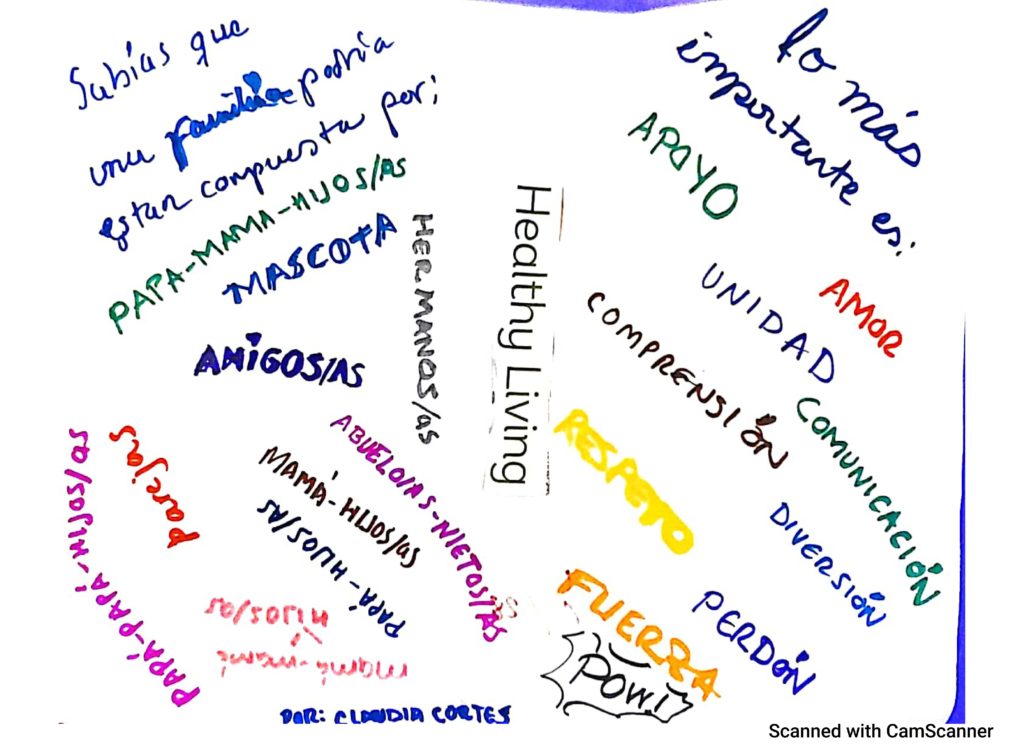 Sabías que
una familia podría
estar compuesta por:
PAPA-MAMA-HIJOS/AS
MASCOTA
HERMANOS/as
AMiGOS/AS
ABUELO/AS-NIETOS/AS
MAMÁ-HIJOS/as
PAPÁ-HIJOS/AS
parejas
PAPÁ-PAPÁ-HIJOS/as
mamá-mamá
HIJOS/as
POR: CLAUDIA CORTES
Healthy Living
lo más
importante es:
APOYO
AMOR
UNIDAD
COMPRENSIÓN
COMUNICACIÓN
RESPETO
DIVERSIÓN
FUERZA
PERDÓN
POW!
Scanned with CamScanner